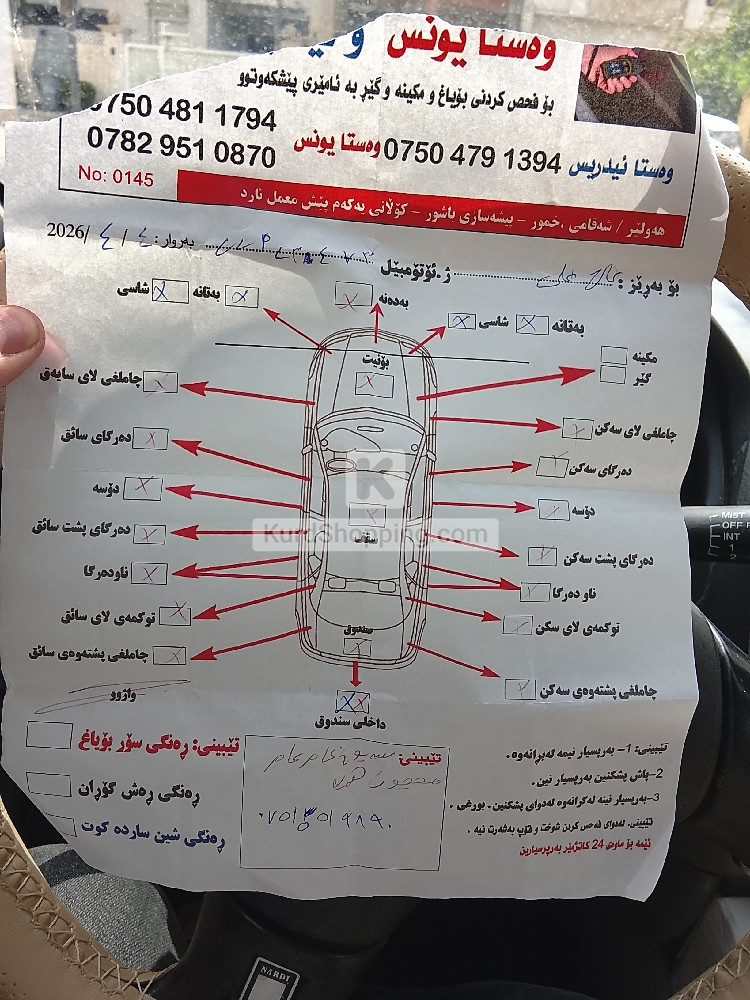 وەستا یونس
بۆ فحص کردنی بۆیاغ و مکینە و گێڕ بە ئامێری پێشکەوتوو
0750 481 1794
0782 951 0870
وەستا ئیدریس 0750 479 1394 وەستا یونس
No: 0145
هەولێر / شەقامی ,خمور - پیشەسازی باشور - کۆڵانی یەکەم پێش معمل نارد
بۆ بەڕێز :
ژ.ئۆتۆمبێل
بەروار: ٤ / ٤ /2026
شاسی
بەتانە
بەدەنە
شاسی
بەتانە
بۆنیت
مکینە
گێڕ
چاملغی لای سایەق
چاملغی لای سەکن
دەرگای سائق
دەرگای سەکن
دۆسە
دۆسە
سقف
KurdShopping.com
دەرگای پشت سائق
دەرگای پشت سەکن
ناودەرگا
ناو دەرگا
توکمەی لای سائق
توکمەی لای سکن
صندوق
چاملغی پشتەوەی سائق
چاملغی پشتەوەی سەکن
واژوو
داخلی سندوق
تێبینی: ڕەنگی سۆر بۆیاغ
ڕەنگی ڕەش گۆڕان
ڕەنگی شین ساردە کوت
تێبینی:
تێبینی: 1- بەرپسیار نیمە لەبڕانەوە.
2-پاش پشکنین بەرپسیار نین.
3-بەرپسیار نینە لەکرانەوە لەدوای پشکنین. بورغی.
تێبینی، لەدوای فەحص کردن شوخت و قۆپ بەفەرت نیە.
ئێمە بۆ ماوەی 24 کاتژمێر بەرپرسیارین
MIST
OFF
INT
1
2
NARDI